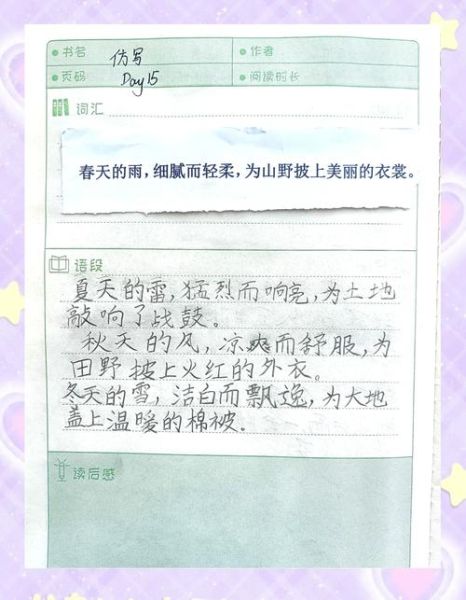 书名 仿写 作者
页码 Day 15 阅读时长
词汇
春天的雨，细腻而轻柔，为山野披上美丽的衣裳。
语段
夏天的雷，猛烈而响亮，为土地
敲响了战鼓。
秋天的风，凉爽而舒服，为
田野披上火红的外衣。
冬天的雪，洁白而飘逸，为大地
盖上温暖的棉被。
读后感